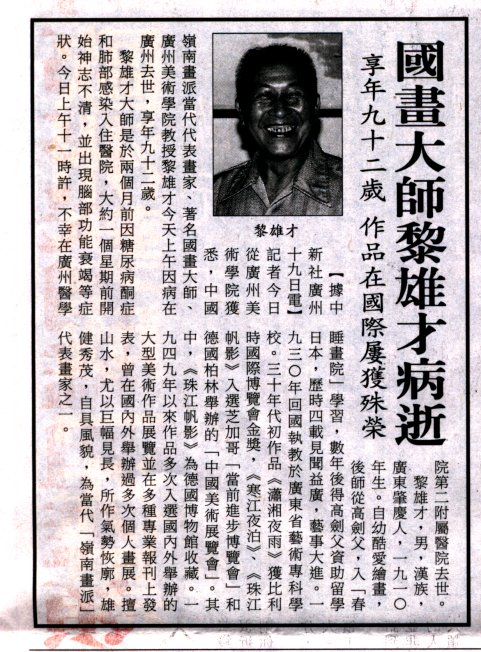 國畫大師黎雄才病逝
享年九十二歲 作品在國際屢獲殊榮
黎雄才
【據中
新社廣州
十九日電】
記者今日
從廣州美
術學院獲
悉，中國
嶺南畫派當代代表畫家、著名國畫大師、
廣州美術學院教授黎雄才今天上午因病在
廣州去世，享年九十二歲。
黎雄才大師是於兩個月前因糖尿病酮症
和肺部感染入住醫院，大約一個星期前開
始神志不清，並出現腦部功能衰竭等症
狀。今日上午十一時許，不幸在廣州醫學
院第二附屬醫院去世。
黎雄才，男，漢族，
廣東肇慶人，一九一〇
年生。自幼酷愛繪畫，
後師從高劍父，入「春
睡畫院」學習，數年後得高劍父資助留學
日本，歷時四載見聞益廣，藝事大進。一
九三〇年回國執教於廣東省藝術專科學
校。三十年代初作品《瀟湘夜雨》獲比利
時國際博覽會金獎，《寒江夜泊》、《珠江
帆影》入選芝加哥「當前進步博覽會」和
德國柏林舉辦的「中國美術展覽會」。其
中，《珠江帆影》為德國博物館收藏。一
九四九年以來作品多次入選國內外舉辦的
大型美術作品展覽並在多種專業報刊上發
表，曾在國內外舉辦過多次個人畫展。擅
山水，尤以巨幅見長，所作氣勢恢廓，雄
健秀茂，自具風貌，為當代「嶺南畫派」
代表畫家之一。